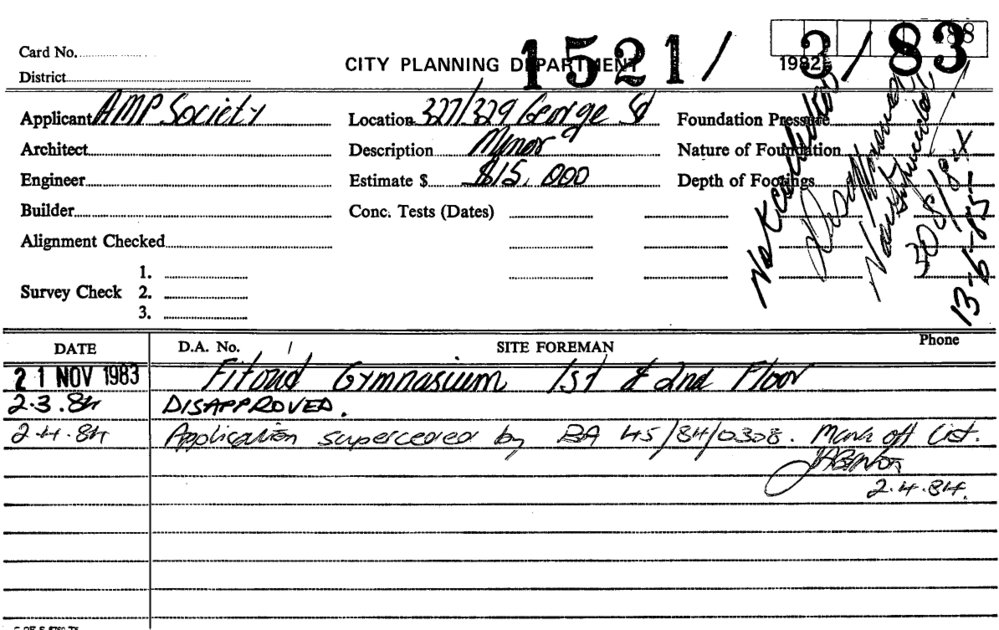 88
Card No.
CITY PLANNING DEPARTMENT 1521/3/83
1982
District
Applicant AMP Society Location 327/329 George St Foundation Pressure
Architect Description Minor Nature of Foundation
Engineer Estimate $ $15,000 Depth of Footings
Builder Conc. Tests (Dates)
Alignment Checked
1.
Survey Check 2.
3.
Not
13-6-85
DATE D.A. No. / SITE FOREMAN Phone
21 NOV 1983 Fitout Gymnasium 1st & 2nd Floor
2.3.84 DISAPPROVED.
2.4.84 Application superceded by BA 45/84/0308. Mark off list.
2.4.84.